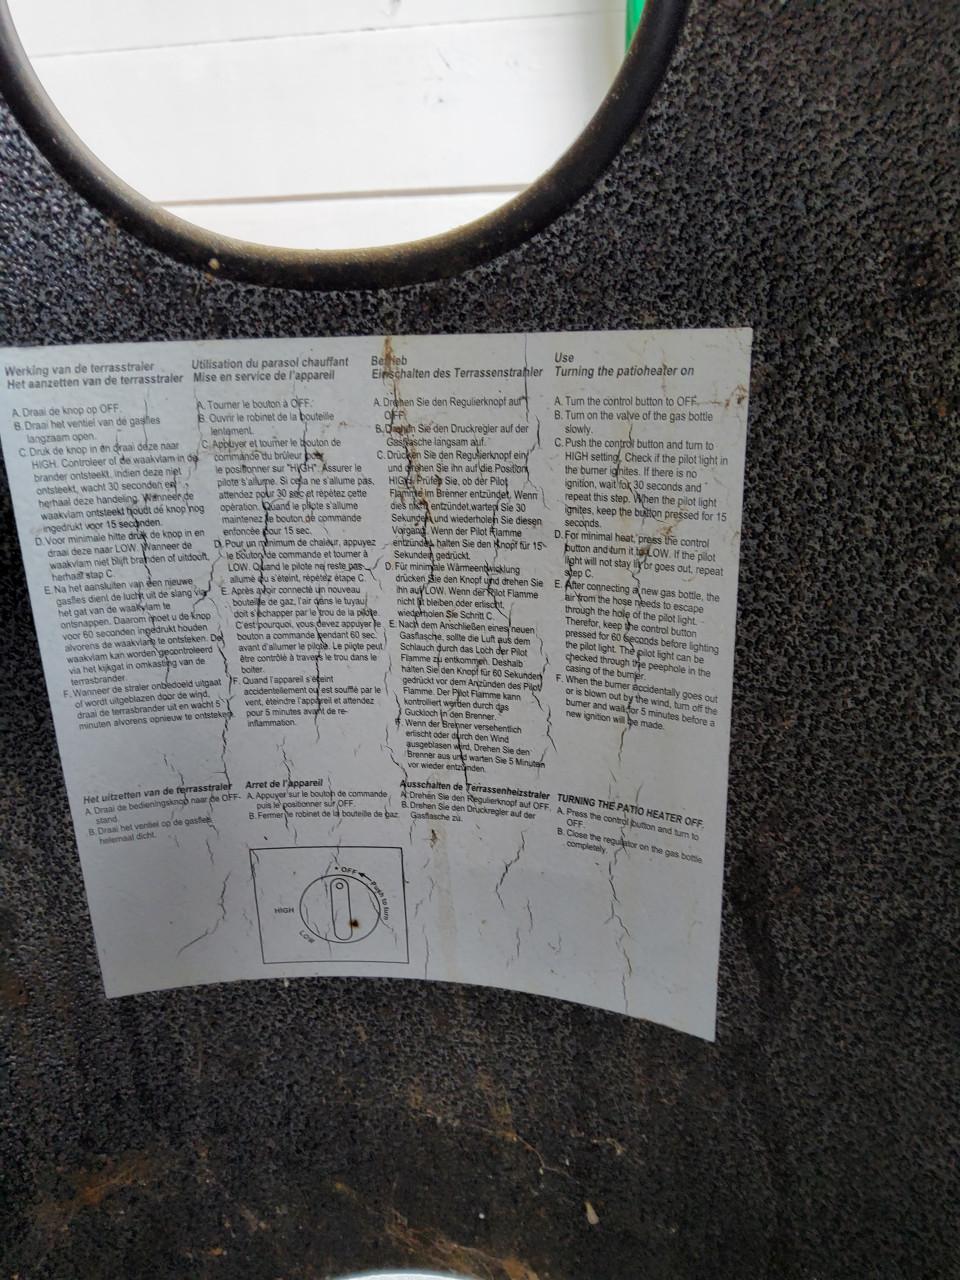 Werking van de terrasstraler
Het aanzetten van de terrasstraler
A. Draai de knop op OFF.
B. Draai het ventiel van de gasfles
langzaam open.
C. Druk de knop in en draai deze naar
HIGH. Controleer of de waakvlam in de
brander ontsteekt, indien deze niet
ontsteekt, wacht 30 seconden en
herhaal deze handeling. Wanneer de
waakvlam ontsteekt houdt de knop nog
ingedrukt voor 15 seconden.
D. Voor minimale hitte druk de knop in en
draai deze naar LOW. Wanneer de
waakvlam niet blijft branden of uitdooft,
herhaal stap C.
E. Na het aansluiten van een nieuwe
gasfles dient de lucht uit de slang via
het gat van de waakvlam te
ontsnappen. Daarom moet u de knop
voor 60 seconden ingedrukt houden
alvorens de waakvlam te ontsteken. De
waakvlam kan worden gecontroleerd
via het kijkgat in omkasting van de
terrasbrander.
F. Wanneer de straler onbedoeld uitgaat
of wordt uitgeblazen door de wind,
draai de terrasbrander uit en wacht 5
minuten alvorens opnieuw te ontsteken.
Het uitzetten van de terrasstraler
A. Draai de bedieningsknop naar de OFF-
stand.
B. Draai het ventiel op de gasfles
helemaal dicht.
Utilisation du parasol chauffant
Mise en service de l'appareil
A. Tourner le bouton à OFF.
B. Ouvrir le robinet de la bouteille
lentement.
C. Appuyer et tourner le bouton de
commande du brûleur pour
le positionner sur "HIGH". Assurer le
pilote s'allume. Si cela ne s'allume pas,
attendez pour 30 sec et répétez cette
opération. Quand le pilote s'allume
maintenez le bouton de commande
enfoncée pour 15 sec.
D. Pour un minimum de chaleur, appuyez
le bouton de commande et tourner à
LOW. Quand le pilote ne reste pas
allumé ou s'éteint, répétez étape C.
E. Après avoir connecté un nouveau
bouteille de gaz, l'air dans le tuyau
doit s'échapper par le trou de la pilote.
C'est pourquoi, vous devez appuyer le
bouton a commande pendant 60 sec.
avant d'allumer le pilote. Le pilote peut
être contrôlé à travers le trou dans le
boîtier.
F. Quand l'appareil s'éteint
accidentellement ou est soufflé par le
vent, éteindre l'appareil et attendez
pour 5 minutes avant de re-
inflammation.
Arret de l'appareil
A. Appuyer sur le bouton de commande
puis le positionner sur OFF.
B. Fermer le robinet de la bouteille de gaz.
Betrieb
Einschalten des Terrassenstrahler
A. Drehen Sie den Regulierknopf auf
OFF.
B. Drehen Sie den Druckregler auf der
Gasflasche langsam auf.
C. Drücken Sie den Regulierknopf ein
und drehen Sie ihn auf die Position
HIGH. Prüfen Sie, ob der Pilot
Flamme im Brenner entzündet. Wenn
dies nicht entzündet,warten Sie 30
Sekunden und wiederholen Sie diesen
Vorgang. Wenn der Pilot Flamme
entzündet, halten Sie den Knopf für 15
Sekunden gedrückt.
D. Für minimale Wärmeentwicklung
drücken Sie den Knopf und drehen Sie
ihn auf LOW. Wenn der Pilot Flamme
nicht lit bleiben oder erlischt,
wiederholen Sie Schritt C.
E. Nach dem Anschließen eines neuen
Gasflasche, sollte die Luft aus dem
Schlauch durch das Loch der Pilot
Flamme zu entkommen. Deshalb
halten Sie den Knopf für 60 Sekunden
gedrückt vor dem Anzünden des Pilot
Flamme. Der Pilot Flamme kann
kontrolliert werden durch das
Guckloch in den Brenner.
F. Wenn der Brenner versehentlich
erlischt oder durch den Wind
ausgeblasen wird, Drehen Sie den
Brenner aus und warten Sie 5 Minuten
vor wieder entzünden.
Ausschalten de Terrassenheizstraler
A. Drehen Sie den Regulierknopf auf OFF.
B. Drehen Sie den Druckregler auf der
Gasflasche zu.
Use
Turning the patioheater on
A. Turn the control button to OFF.
B. Turn on the valve of the gas bottle
slowly.
C. Push the control button and turn to
HIGH setting. Check if the pilot light in
the burner ignites. If there is no
ignition, wait for 30 seconds and
repeat this step. When the pilot light
ignites, keep the button pressed for 15
seconds.
D. For minimal heat, press the control
button and turn it to LOW. If the pilot
light will not stay lit or goes out, repeat
step C.
E. After connecting a new gas bottle, the
air from the hose needs to escape
through the hole of the pilot light.
Therefor, keep the control button
pressed for 60 seconds before lighting
the pilot light. The pilot light can be
checked through the peephole in the
casing of the burner.
F. When the burner accidentally goes out
or is blown out by the wind, turn off the
burner and wait for 5 minutes before a
new ignition will be made.
TURNING THE PATIO HEATER OFF.
A. Press the control button and turn to
OFF.
B. Close the regulator on the gas bottle
completely.
OFF
Push to turn
HIGH
LOW